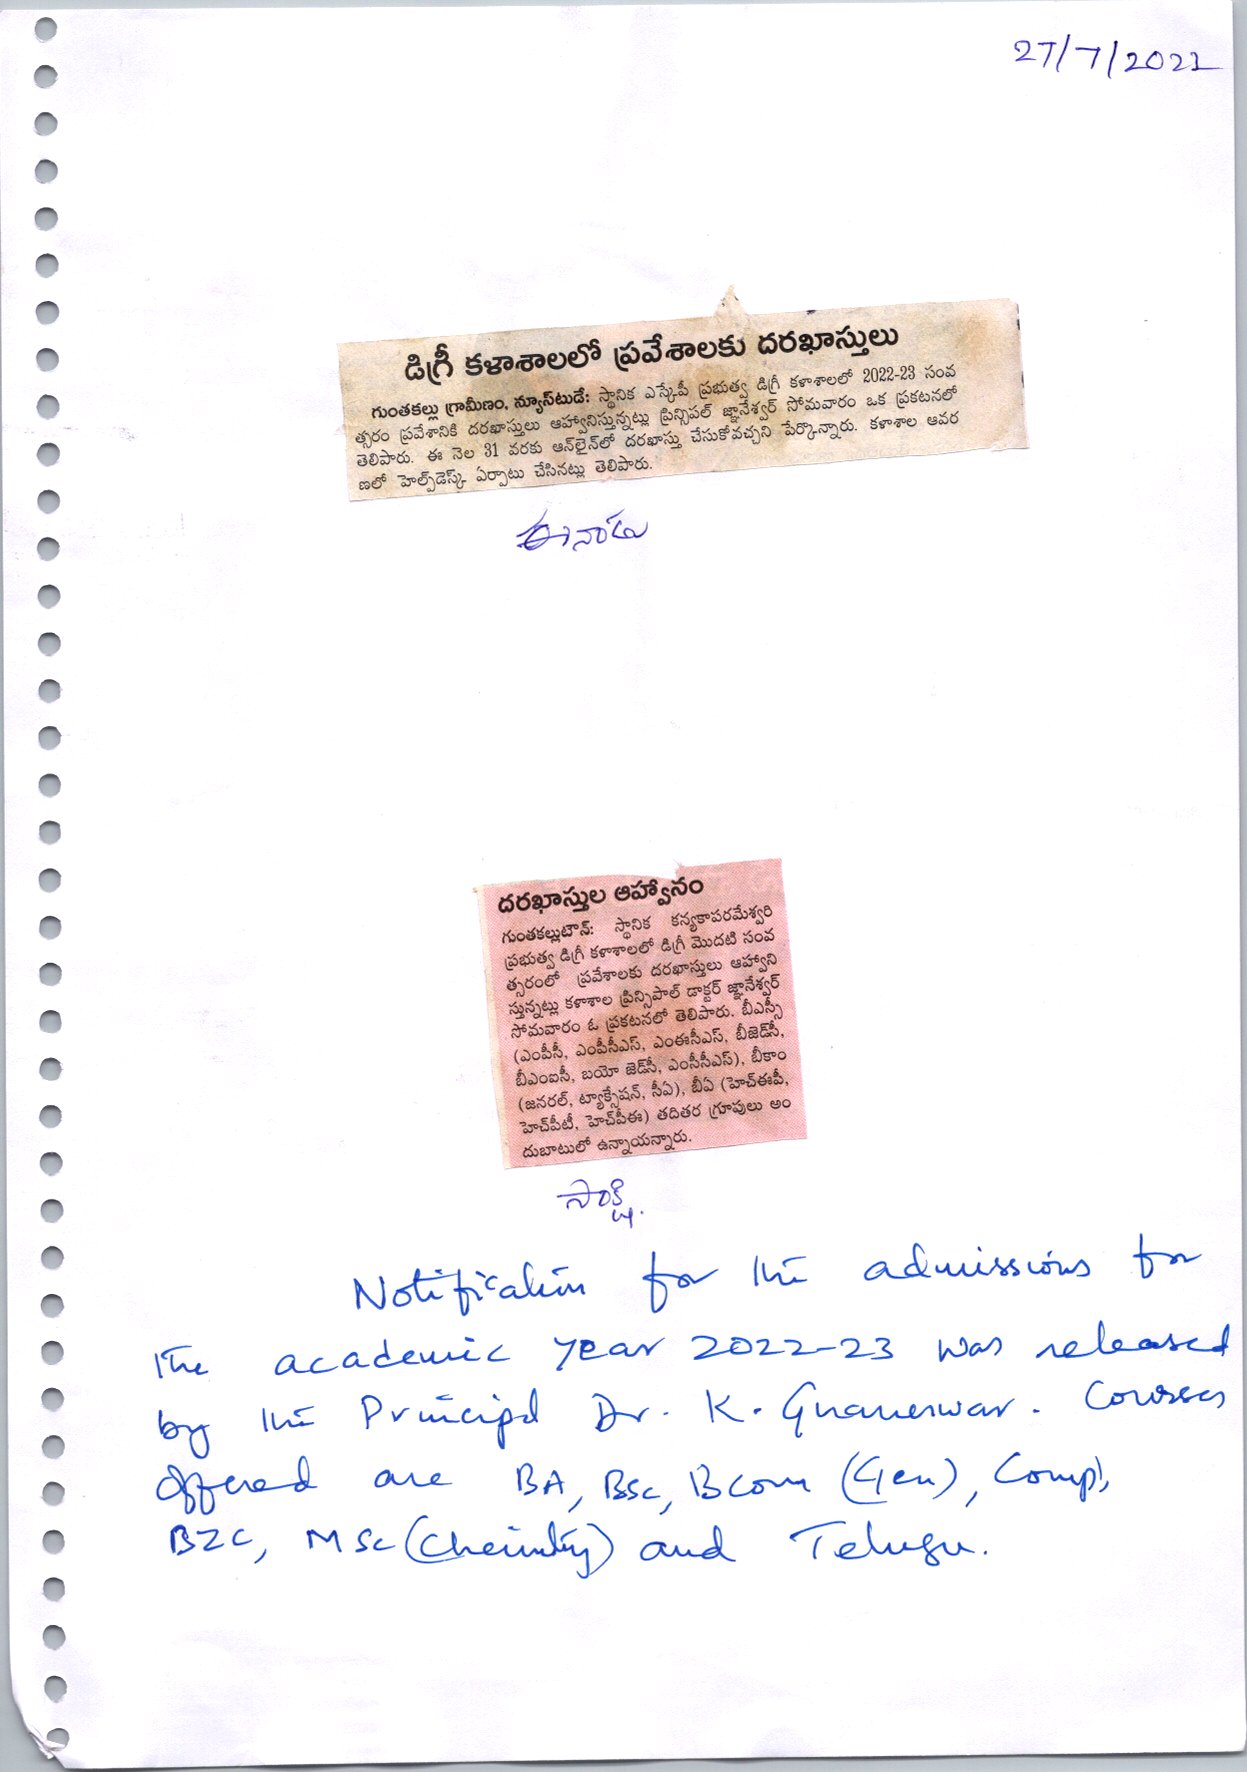 27/7/2022
డిగ్రీ కళాశాలలో ప్రవేశాలకు దరఖాస్తులు
గుంతకల్లు గ్రామీణం, న్యూస్‌టుడే: స్థానిక ఎస్కేపీ ప్రభుత్వ డిగ్రీ కళాశాలలో 2022-23 సంవ
త్సరం ప్రవేశానికి దరఖాస్తులు ఆహ్వానిస్తున్నట్లు ప్రిన్సిపల్ జ్ఞానేశ్వర్ సోమవారం ఒక ప్రకటనలో
తెలిపారు. ఈ నెల 31 వరకు ఆన్‌లైన్‌లో దరఖాస్తు చేసుకోవచ్చని పేర్కొన్నారు. కళాశాల ఆవర
ణలో హెల్ప్‌డెస్క్ ఏర్పాటు చేసినట్లు తెలిపారు.
ఈనాడు
దరఖాస్తుల ఆహ్వానం
గుంతకల్లుటౌన్: స్థానిక కన్యకాపరమేశ్వరి
ప్రభుత్వ డిగ్రీ కళాశాలలో డిగ్రీ మొదటి సంవ
త్సరంలో ప్రవేశాలకు దరఖాస్తులు ఆహ్వాని
స్తున్నట్లు కళాశాల ప్రిన్సిపాల్ డాక్టర్ జ్ఞానేశ్వర్
సోమవారం ఓ ప్రకటనలో తెలిపారు. బీఎస్సీ
(ఎంపీసీ, ఎంపీసీఎస్, ఎంఈసీఎస్, బీజెడ్‌సీ,
బీఎంఐసీ, బయో జెడ్‌సీ, ఎంసీసీఎస్), బీకాం
(జనరల్, ట్యాక్సేషన్, సీఏ), బీఏ (హెచ్ఈపీ,
హెచ్‌పీటీ, హెచ్‌పీఈ) తదితర గ్రూపులు అం
దుబాటులో ఉన్నాయన్నారు.
సాక్షి.
Notification for the admissions for
the academic year 2022-23 was released
by the Principal Dr. K. Gnaneswar. Courses
offered are BA, BSc, BCom (Gen), Comp),
BZC, MSc (Chemistry) and Telugu.